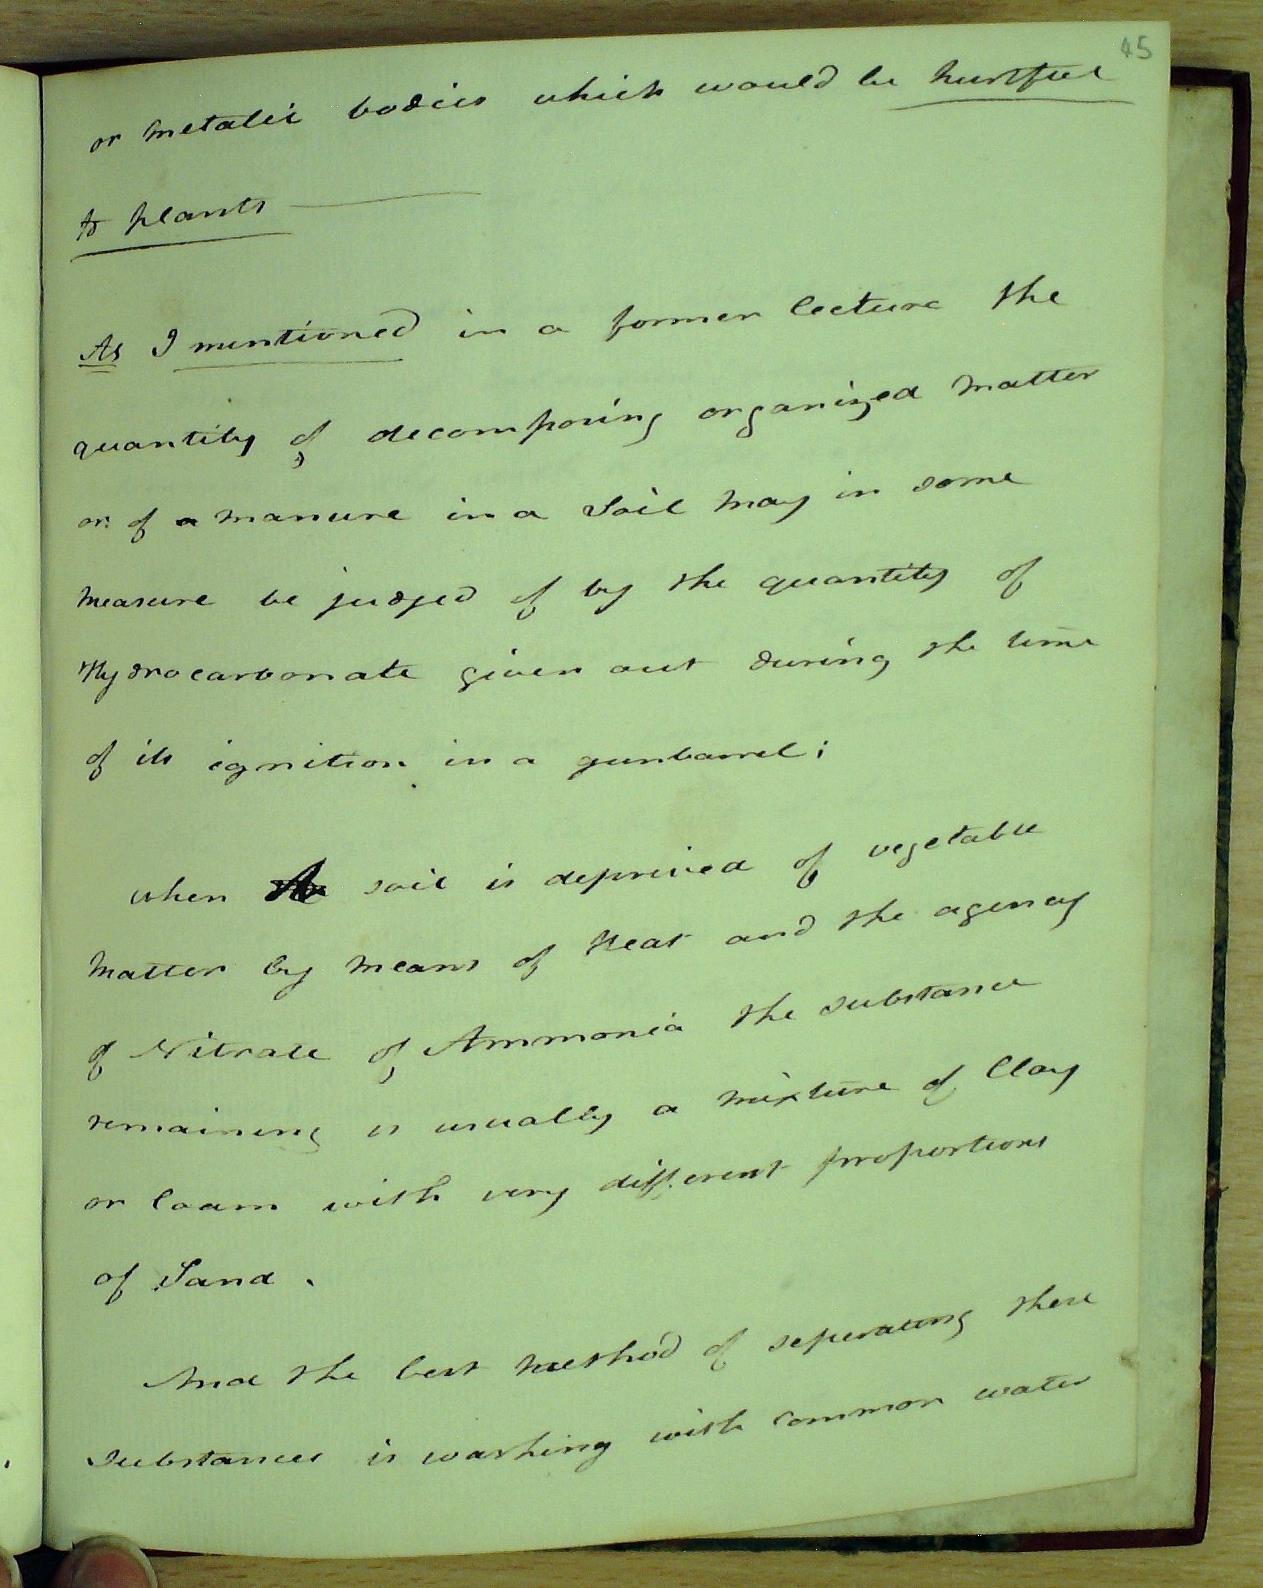 45
or metalic bodies which would be hurtful
to plants ———
As I mentioned in a former lecture the
quantity of decomposing organized matter
or of a manure in a Soil may in some
measure be judged of by the quantity of
Hydrocarbonate given out during the time
of its ignition in a gunbarrel;
when soil is deprived of vegetable
matter by means of Heat and the agency
of Nitrate of Ammonia the substance
remaining is usually a mixture of Clay
or loam with very different proportions
of Sand.
And the best method of seperating these
substances is washing with common water